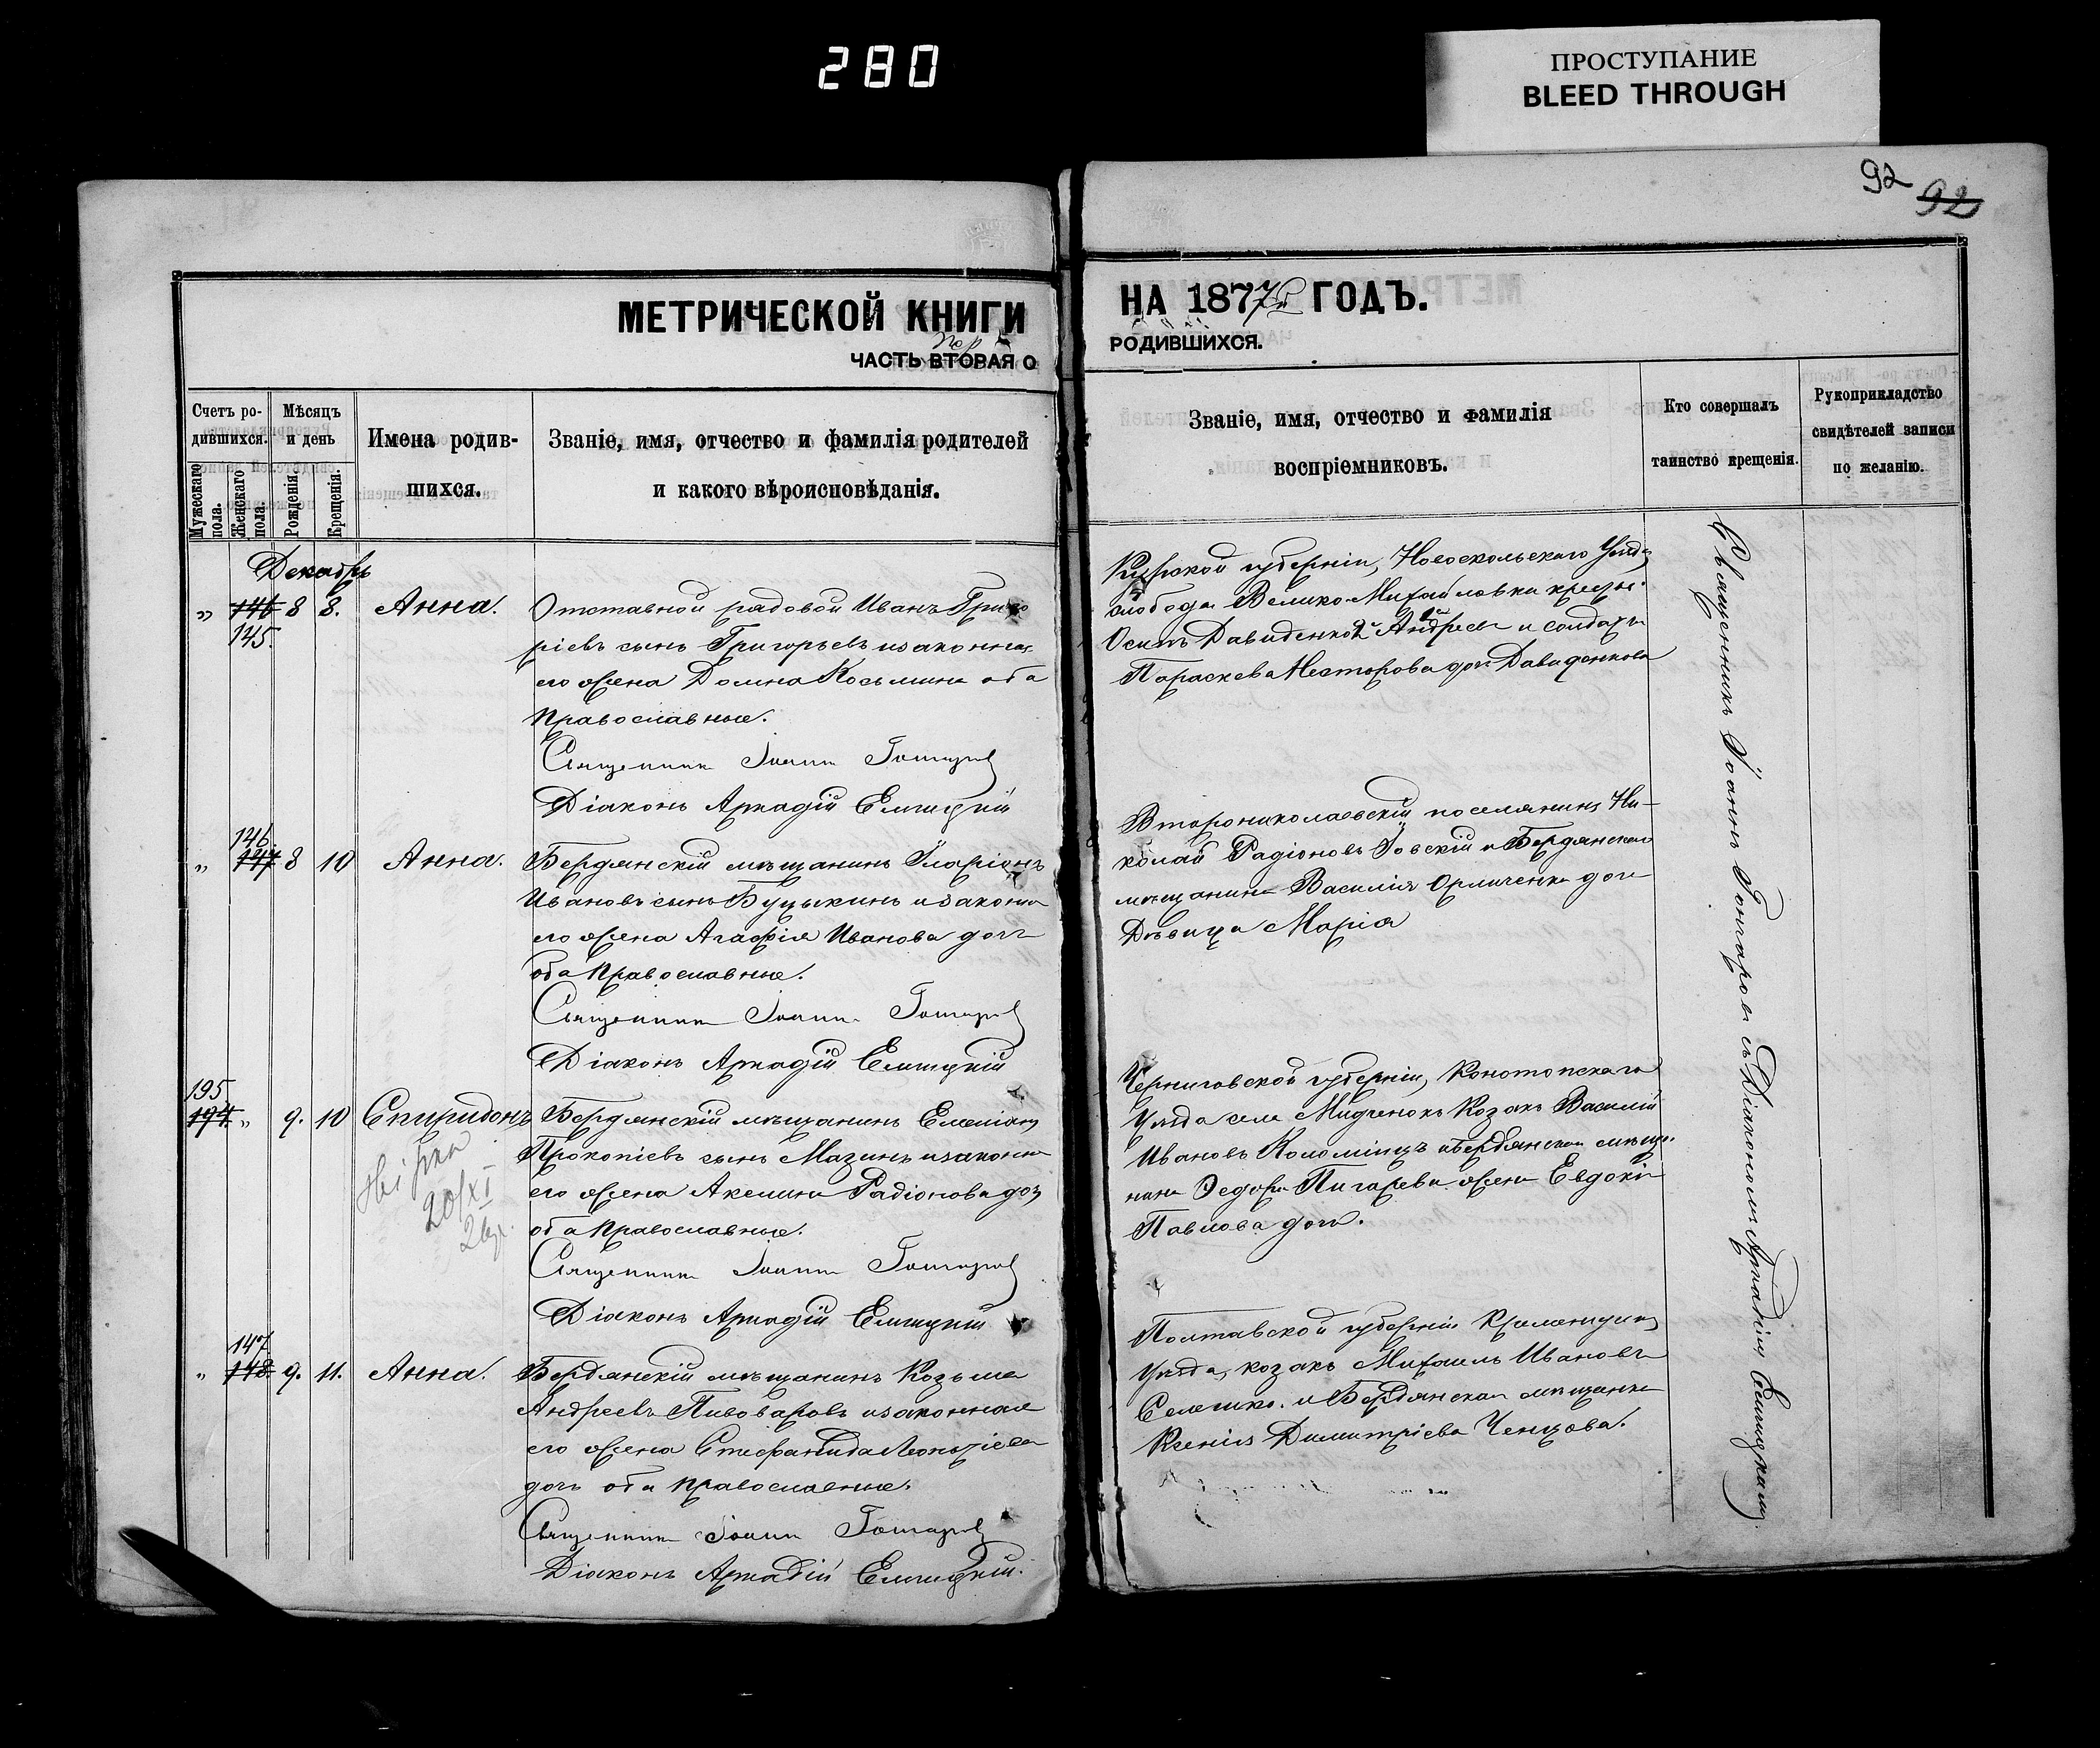 280
ПРОСТУПАНИЕ
BLEED THROUGH
92
92
МЕТРИЧЕСКОЙ КНИГИ
ЧАСТЬ ВТОРАЯ О
НА 1877й ГОДЪ.
РОДИВШИХСЯ.
Счетъ ро-
дившихся.
Мужескаго
пола.
Женскаго
пола.
Мѣсяцъ
и день
Рожденія.
Крещенія.
Имена родив-
шихся.
Званіе, имя, отчество и фамилія родителей
и какого вѣроисповѣданія.
Званіе, имя, отчество и фамилія
воспріемниковъ.
Кто совершалъ
таинство крещенія.
Рукоприкладство
свидѣтелей записи
по желанію.
Декабрь
„ 146 8 8. Анна.
145.
Отставной рядовой Иванъ Григо
ріевъ сынъ Григорьевъ и законная
его жена Домна Косьмина оба
православные.
Священникъ Іоаннъ Гонгаровъ
Діаконъ Аркадій
Курской губерніи, Новоскольскаго Уѣзда
слободы Велико-Михайловки
Осипъ Давиденковъ Андреевъ и солдатъ
Параскева Несторова доч Давиденкова
146.
„ 147 8 10 Анна.
Бердянскій мѣщанинъ Иларіонъ
Ивановъ сынъ Буцыкинъ и законная
его жена Агафія Иванова доч
оба православные.
Священникъ Іоаннъ Гонгаровъ
Діаконъ Аркадій
Второниколаевскій поселянинъ Ни-
колай Радіоновъ и Бердянскаго
мѣщанина Василія дочь
Дѣвица Марія
195
194 „ 9. 10 Спиридонъ
20/XI
Бердянскій мѣщанинъ Емеліанъ
Прокопіевъ сынъ Мазинъ и законная
его жена Акелина Радіонова доч
оба православные.
Священникъ Іоаннъ Гонгаровъ
Діаконъ Аркадій
Черниговской губерніи, Конотопскаго
Уѣзда села Мидченокъ Козакъ Василій
Ивановъ Коломіецъ и бердянскаго мѣща-
нина Федора Пигарева жена Евдокія
Павлова доч.
147
„ 148. 9. 11. Анна.
Бердянскій мѣщанинъ Козьма
Андреевъ Пивоваровъ и законная
его жена Стефанида Леонтіева
дочь оба православные.
Священникъ Іоаннъ Гонгаровъ
Діаконъ Аркадій
Полтавской губерніи
Уѣзда, козакъ Михаилъ Ивановъ
Селешко. и Бердянская мѣщанка
Ксенія Димитріева Ченцова.
Священникъ Іоаннъ Гонгаровъ съ Діакономъ Аркадіемъ